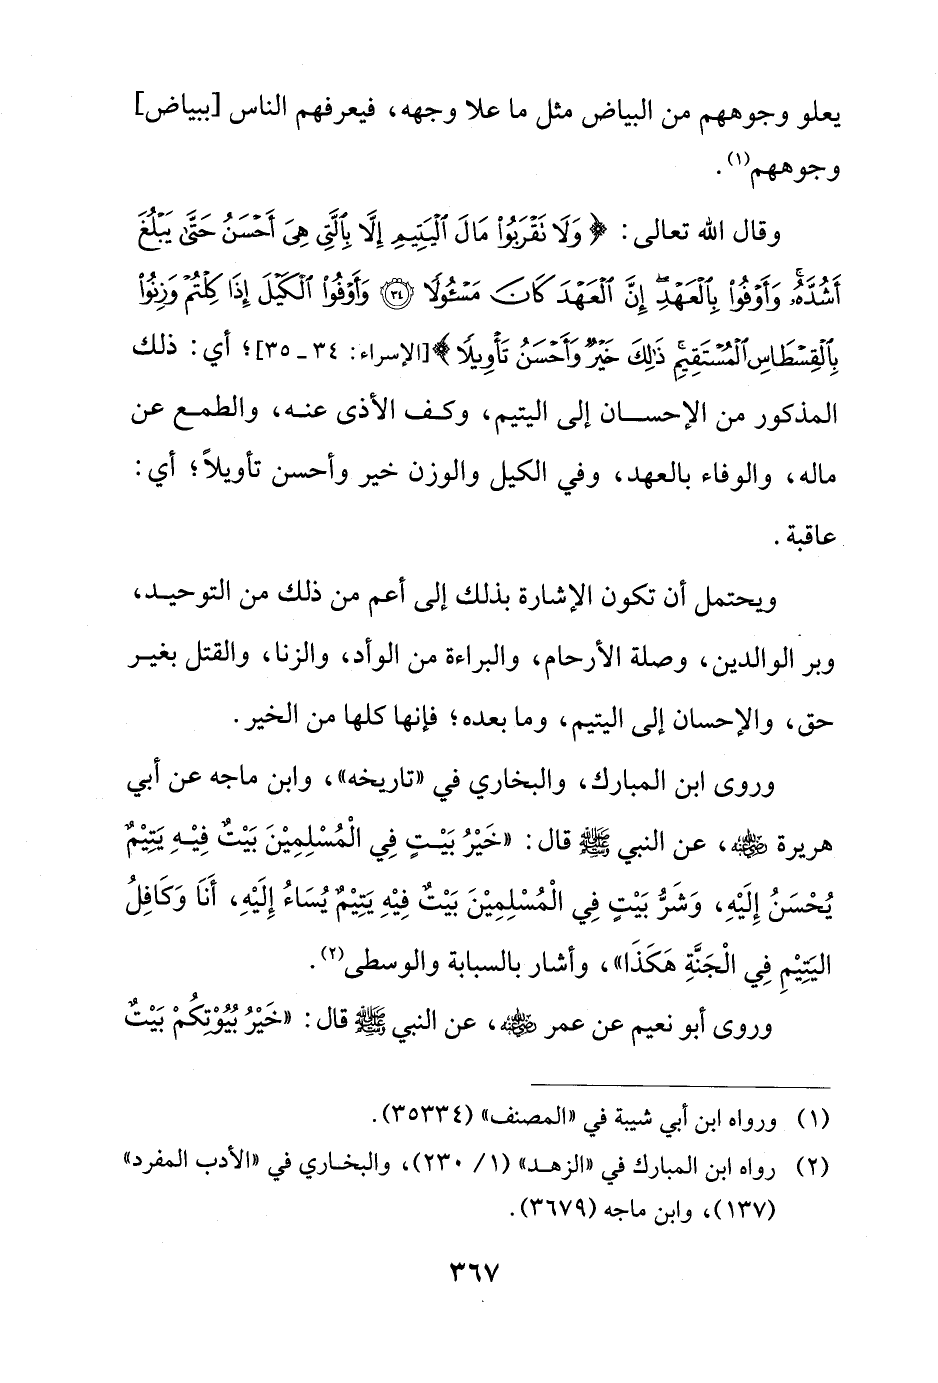 يعلو وجوههم من البياض مثل ما علا وجهه، فيعرفهم الناس [ببياض]
وجوههم(١).
وقال الله تعالى: ﴿وَلَا نَقْرَبُوا۟ مَالَ ٱلْيَتِيمِ إِلَّا بِٱلَّتِي هِيَ أَحْسَنُ حَتَّىٰ يَبْلُغَ
أَشُدَّهُۥ وَأَوْفُوا۟ بِٱلْعَهْدِ إِنَّ ٱلْعَهْدَ كَانَ مَسْـُٔولًا ﴿٣٤﴾ وَأَوْفُوا۟ ٱلْكَيْلَ إِذَا كِلْتُمْ وَزِنُوا۟
بِٱلْقِسْطَاسِ ٱلْمُسْتَقِيمِ ذَٰلِكَ خَيْرٌ وَأَحْسَنُ تَأْوِيلًا﴾ [الإسراء: ٣٤ ـ ٣٥]؛ أي: ذلك
المذكور من الإحسان إلى اليتيم، وكف الأذى عنه، والطمع عن
ماله، والوفاء بالعهد، وفي الكيل والوزن خير وأحسن تأويلاً؛ أي:
عاقبة.
ويحتمل أن تكون الإشارة بذلك إلى أعم من ذلك من التوحيد،
وبر الوالدين، وصلة الأرحام، والبراءة من الوأد، والزنا، والقتل بغير
حق، والإحسان إلى اليتيم، وما بعده؛ فإنها كلها من الخير.
وروى ابن المبارك، والبخاري في «تاريخه»، وابن ماجه عن أبي
هريرة رضي الله عنه، عن النبي ﷺ قال: «خَيْرُ بَيْتٍ فِي الْمُسْلِمِيْنَ بَيْتٌ فِيْهِ يَتِيْمٌ
يُحْسَنُ إِلَيْهِ، وَشَرُّ بَيْتٍ فِي الْمُسْلِمِيْنَ بَيْتٌ فِيْهِ يَتِيْمٌ يُسَاءُ إِلَيْهِ، أَنَا وَكَافِلُ
اليَتِيْمِ فِي الْجَنَّةِ هَكَذَا»، وأشار بالسبابة والوسطى(٢).
وروى أبو نعيم عن عمر رضي الله عنه، عن النبي ﷺ قال: «خَيْرُ بُيُوْتِكُمْ بَيْتٌ
(١) ورواه ابن أبي شيبة في «المصنف» (٣٥٣٣٤).
(٢) رواه ابن المبارك في «الزهد» (١/ ٢٣٠)، والبخاري في «الأدب المفرد»
(١٣٧)، وابن ماجه (٣٦٧٩).
٣٦٧